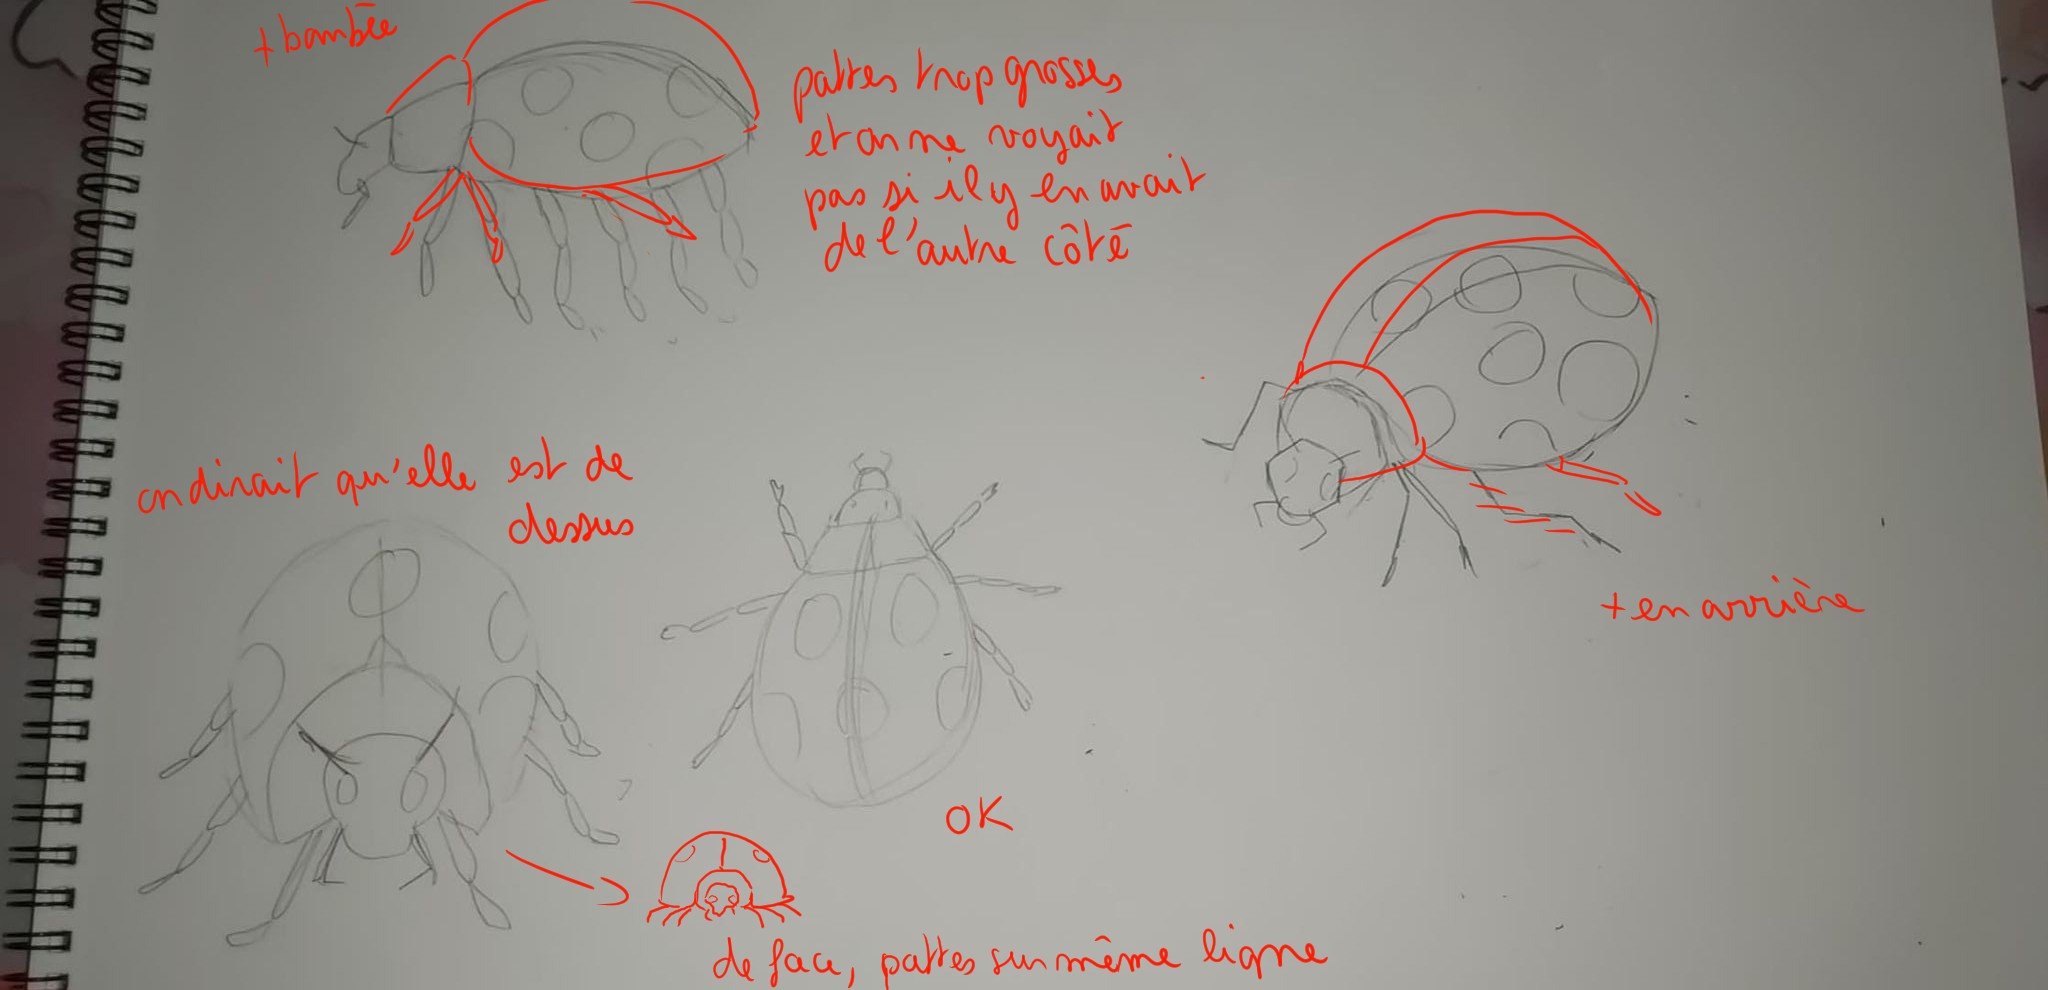 + bombée
pattes trop grosses
et on ne voyait
pas si il y en avait
de l'autre côté
on dirait qu'elle est de
dessus
+ en arrière
OK
de face, pattes sur même ligne